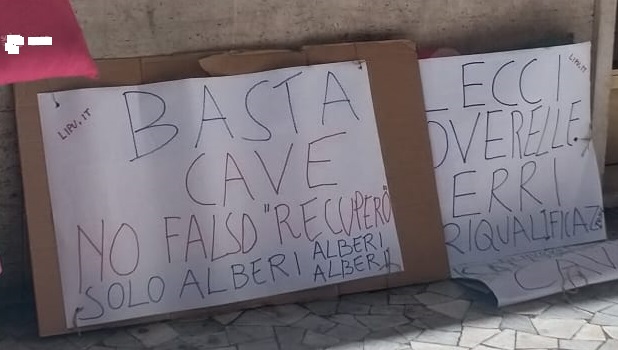 LIPU.IT
BASTA
CAVE
NO FALSO "RECUPERO"
SOLO ALBERI ALBERI
ALBERI
LIPU.IT
LECCI
OVERELLE
ERRI
RIQUALIFICAZ
CAV